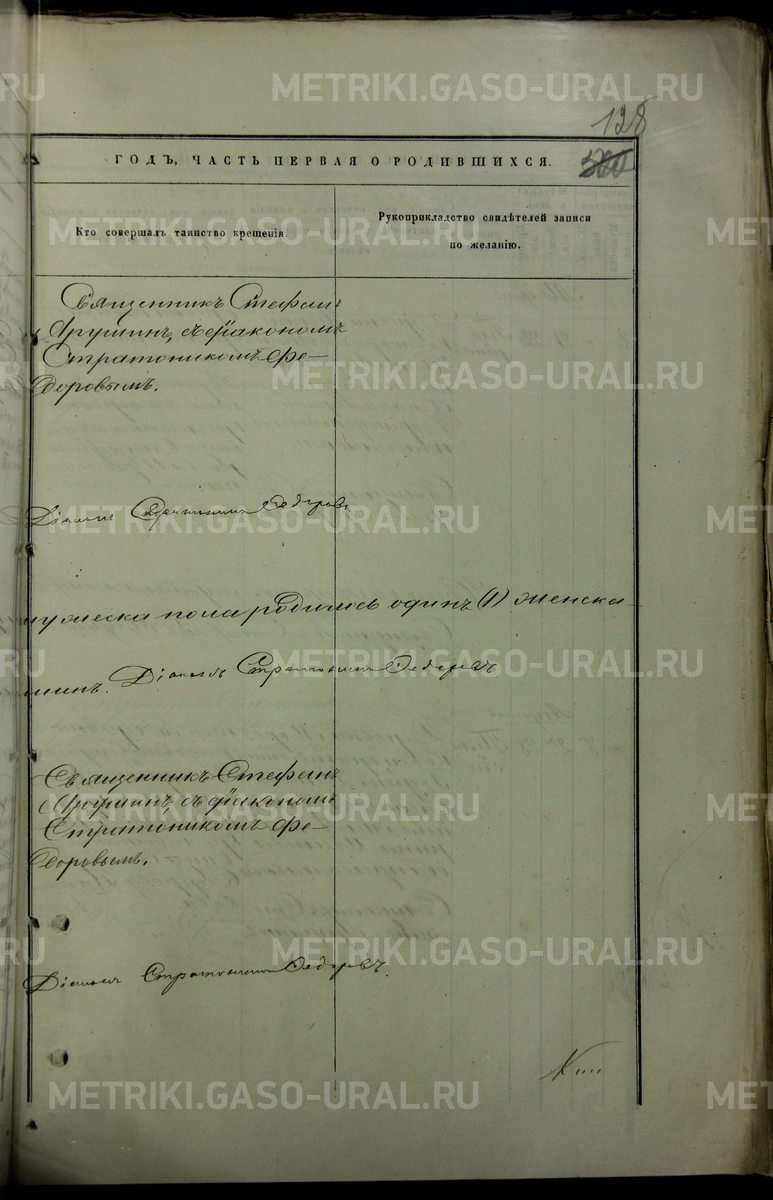 METRIKI.GASO-URAL.RU
128
ГОДЪ, ЧАСТЬ ПЕРВАЯ О РОДИВШИХСЯ.
Кто совершалъ таинство крещенія.
Рукоприкладство свидѣтелей записи
по желанію.
Священникъ Стефанъ
съ Діакономъ
Стратоникомъ Ѳе-
доровымъ.
Діаконъ Стратоникъ Ѳедоровъ
мужеска пола родилось одинъ (1) женска
Діаконъ Стратоникъ Ѳедоровъ
Священникъ Стефанъ
съ діакономъ
Стратоникомъ Ѳе-
доровымъ.
Діаконъ Стратоникъ Ѳедоровъ.